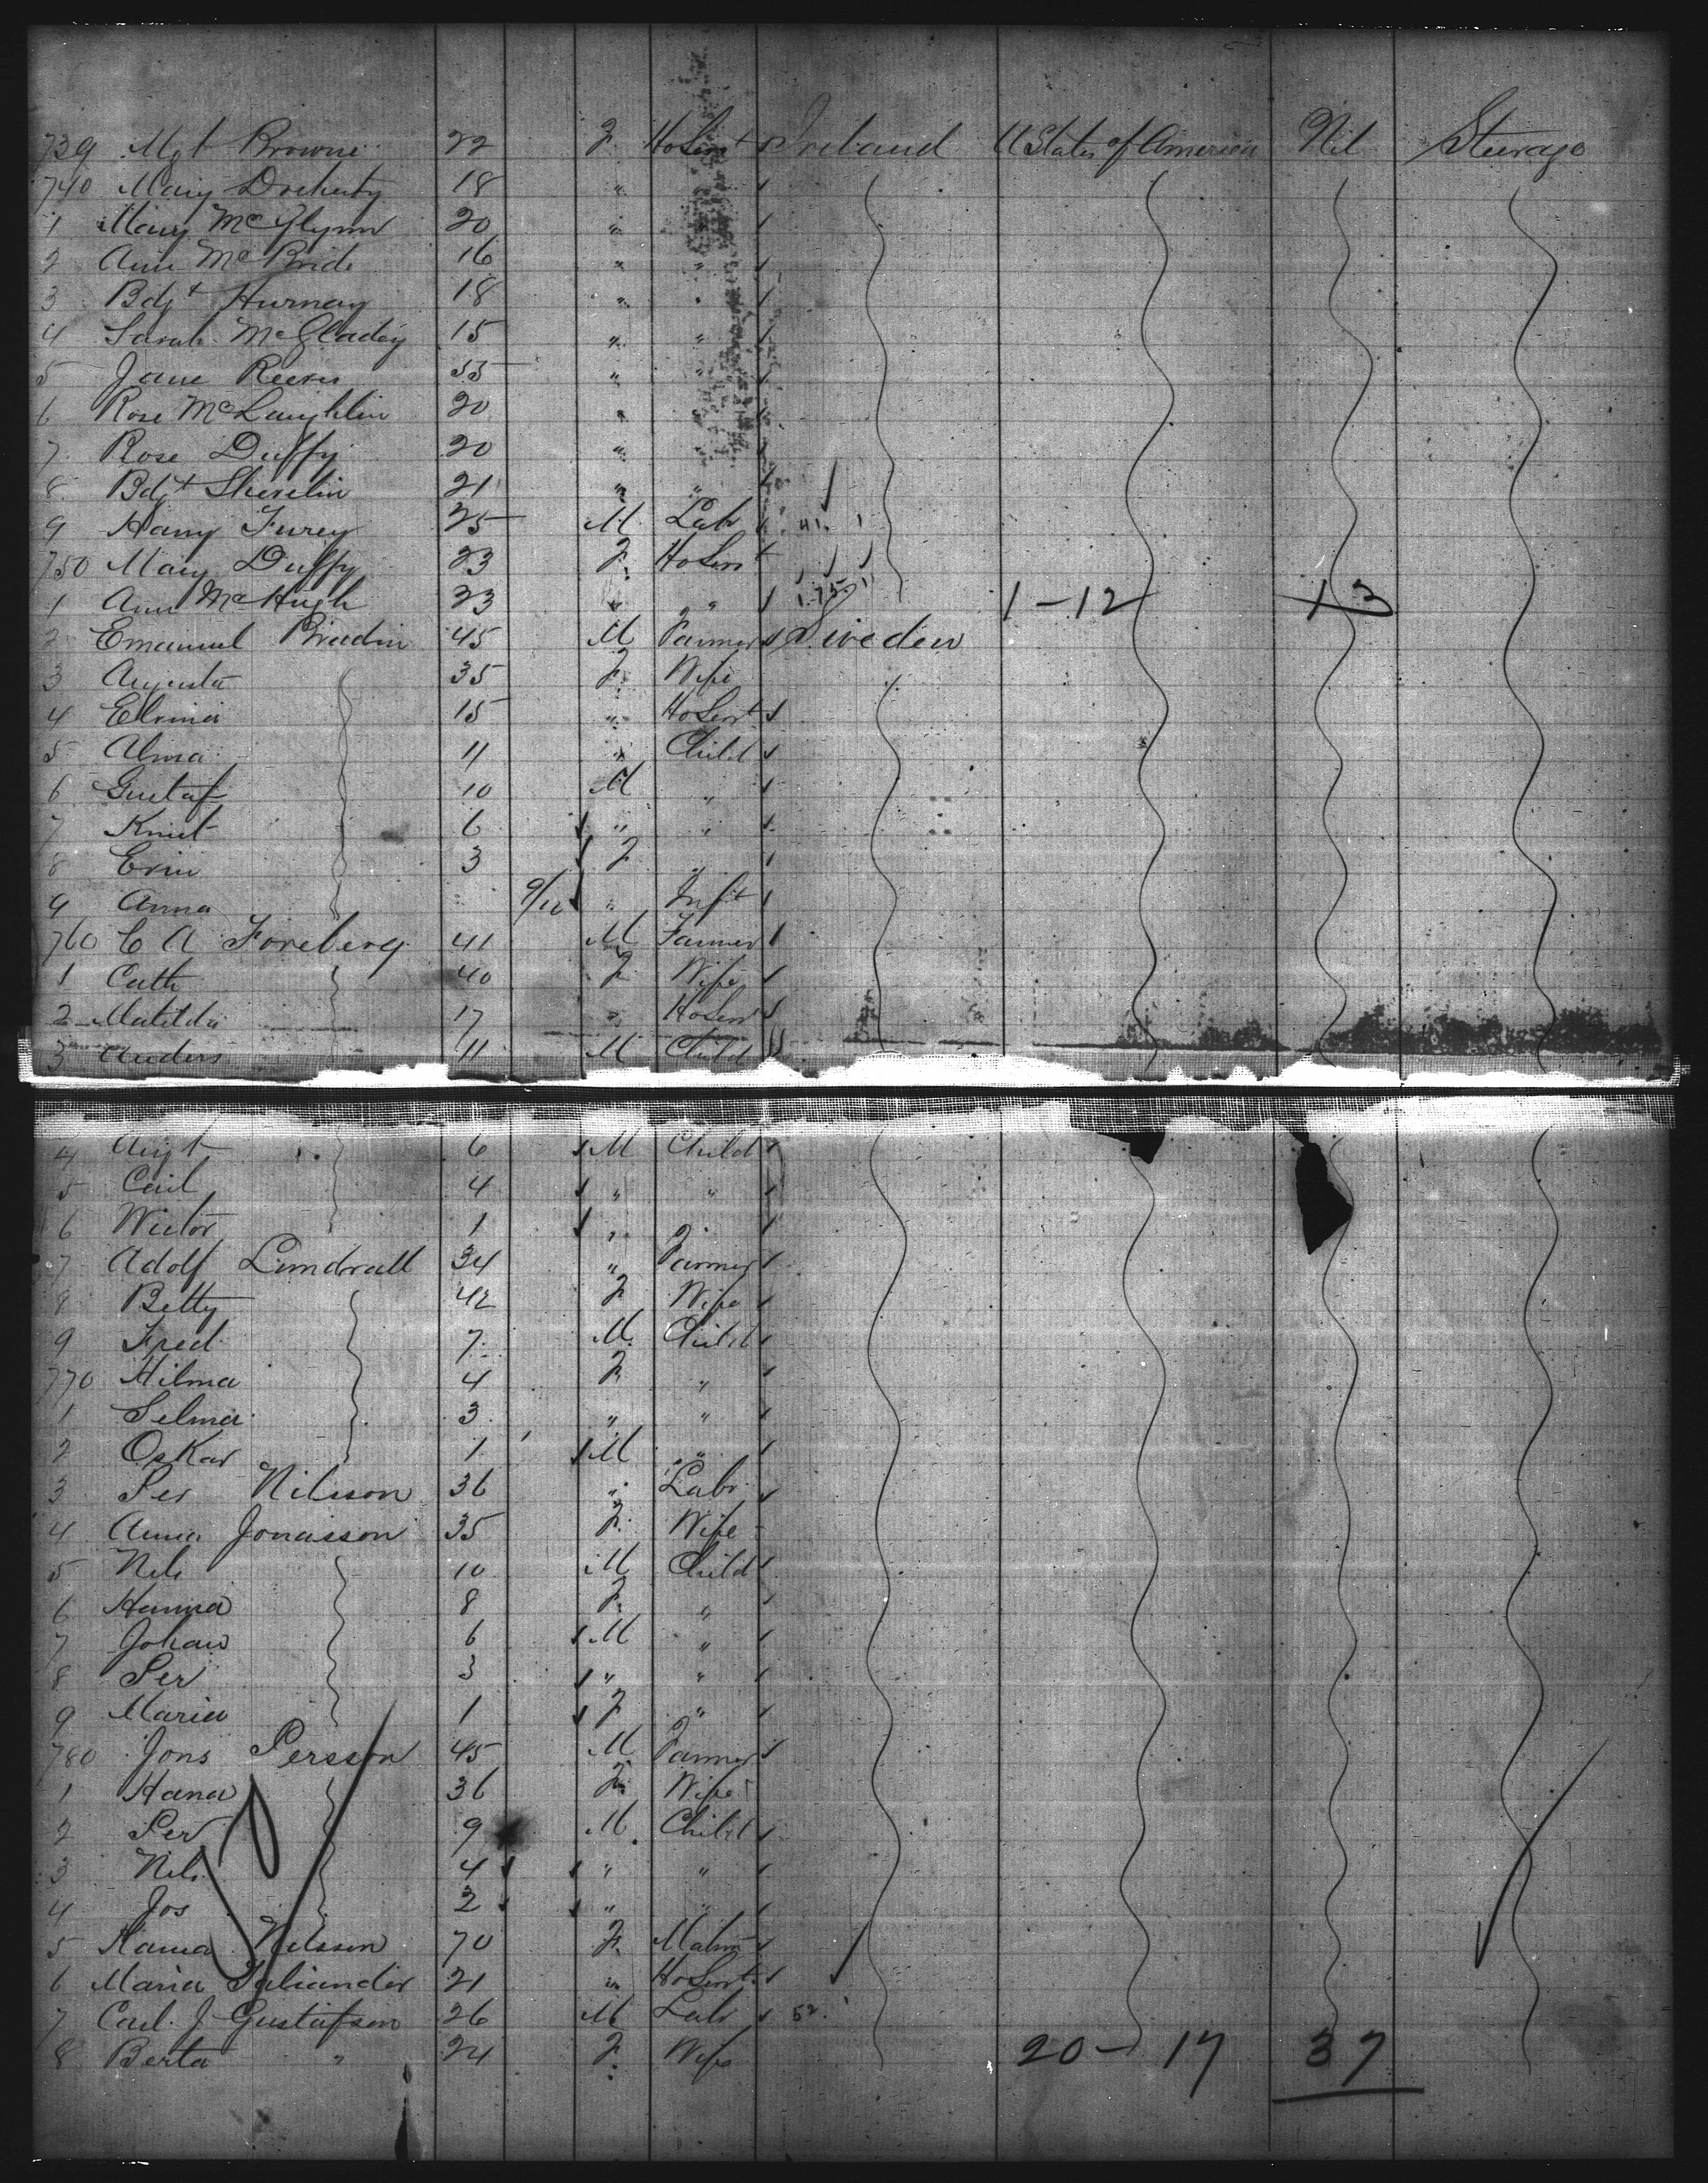 739 Mgt Browne 22 F HoServt Ireland U States of America Nil Steerage
740 Mary Docherty 18 " "
1 Mary McGlynn 20 " "
2 Ann McBride 16 " "
3 Bdgt Hurnay 18 " "
4 Sarah McGladey 15 " "
5 Jane Reeves 55 " "
6 Rose McLaughlin 20 " "
7 Rose Duffy 20 " "
8 Bdgt Shevelin 21 " "
9 Harry Furey 25 M Labr 41. 1
750 Mary Duffy 23 F HoServt
1 Ann McHugh 23 " " 1-12 13
2 Emanuel 45 M Farmer Sweden
3 Augusta 35 F Wife
4 Elvina 15 " HoServt
5 Alma 11 " Child
6 Gustaf 10 M "
7 Knut 6 " "
8 Erin 3 F "
9 Anna 9/12 " Inft
760 C A Foreberg 41 M Farmer
1 Cath 40 F Wife
2 Matilda 17 " HoServt
3 Anders 11 M Child
4 Augt 6 M Child
5 Carl 4 " "
6 Wictor 1 " "
7 Adolf Lundvall 34 " Farmer
8 Betty 42 F Wife
9 Fred 7 M Child
770 Hilma 4 F "
1 Selma 3 " "
2 Oskar 1 M "
3 Per Nilsson 36 " Labr
4 Anna Jonasson 35 F Wife
5 Nils 10 M Child
6 Hanna 8 F "
7 Johan 6 M "
8 Per 3 " "
9 Maria 1 F "
780 Jons Persson 45 M Farmer
1 Hana 36 F Wife
2 Per 9 M Child
3 Nils 4 " "
4 Jos 2 " "
5 Hanna Nilsson 70 F Matrn
6 Maria Juliander 21 " HoServt
7 Carl J Gustafson 26 M Labr 52
8 Berta " 24 F Wife 20-17 37